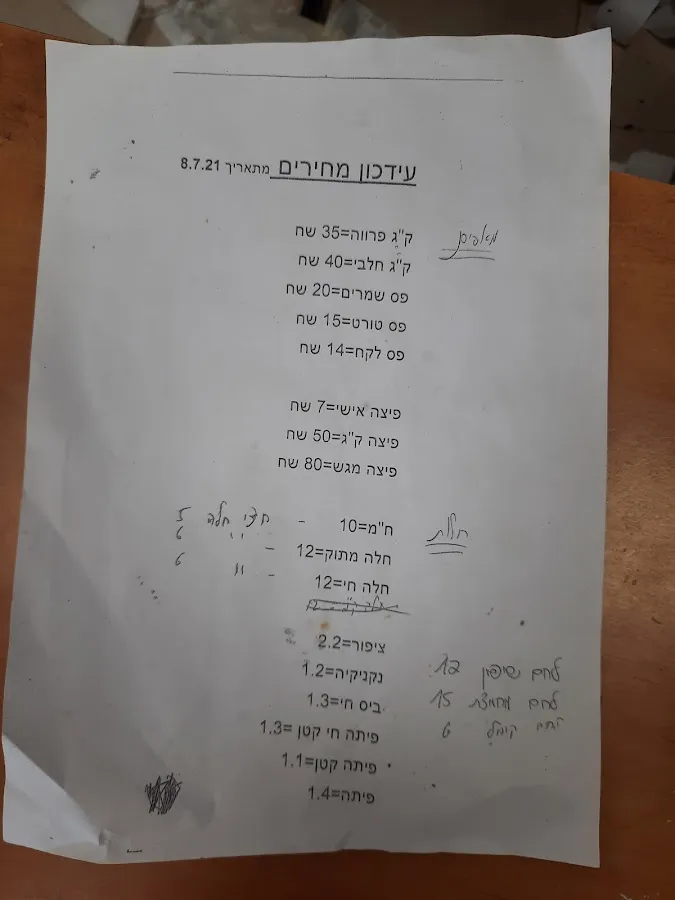 עידכון מחירים מתאריך 8.7.21
מאפים
ק"ג פרווה=35 שח
ק"ג חלבי=40 שח
פס שמרים=20 שח
פס טורט=15 שח
פס לקח=14 שח
פיצה אישי=7 שח
פיצה ק"ג=50 שח
פיצה מגש=80 שח
חלות
ח"מ=10 - חצי חלה 5
חלה מתוק=12 - " 6
חלה חי=12 - " 6
ציפור=2.2
נקניקיה=1.2 לחם שיפון 12
ביס חי=1.3 לחם מחמצת 15
פיתה חי קטן =1.3 6
פיתה קטן=1.1
פיתה=1.4